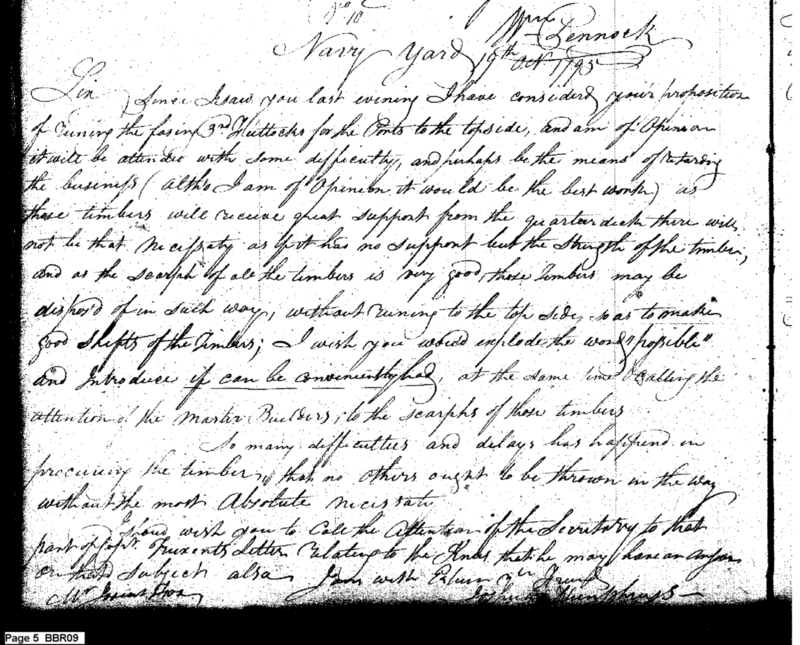 No 10
Wm Pennock
Navy Yard 19th Oct 1795
Sir, Since I saw you last evening I have considerd your proposition
of runing the fasing 3rd Futtocks for the Ports to the topside, and am of Opineon
it will be attended with some difficulty, and perhaps be the means of retarding
the business (altho I am of Opineon it would be the best work) as
those timbers will receive great support from the quarterdeck there will
not be that necissaty as if it has no support but the strength of the timber,
and as the scarph of all the timbers is very good, those timbers may be
disposd of in such way, without runing to the top side, so as to make
good shifts of the timbers; I wish you would explode the word "possible"
and Introduce if can be conveniently had, at the same time calling the
attention of the Master Builders, to the scarphs of those timbers
So many difficulties and delays has happend in
procuring the timber, that no others ought to be thrown in the way
without the most Absolute necissate
I shoud wish you to Call the Attention of the Secretary to that
part of Capt. Truxents Letter relating to the Knees that he may have an
on that subject also I am with Esteem yr Friend
Mr Josiah Fox Joshua Humphreys
Page 5 BBR09